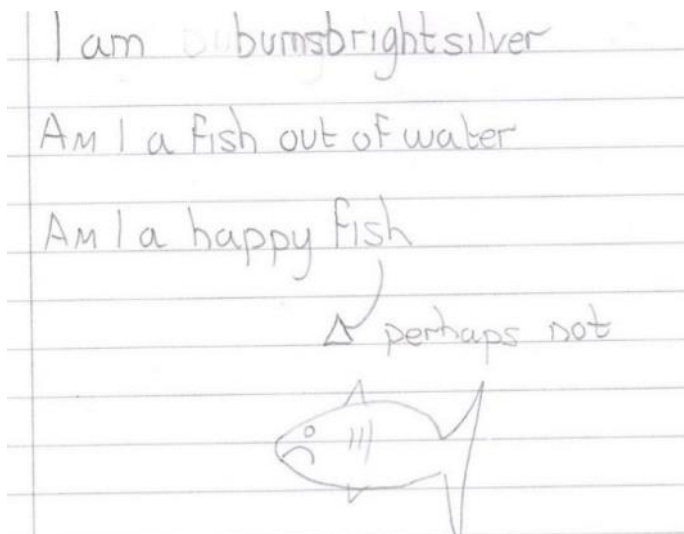 I am bumsbrightsilver
Am I a fish out of water
Am I a happy fish
perhaps not